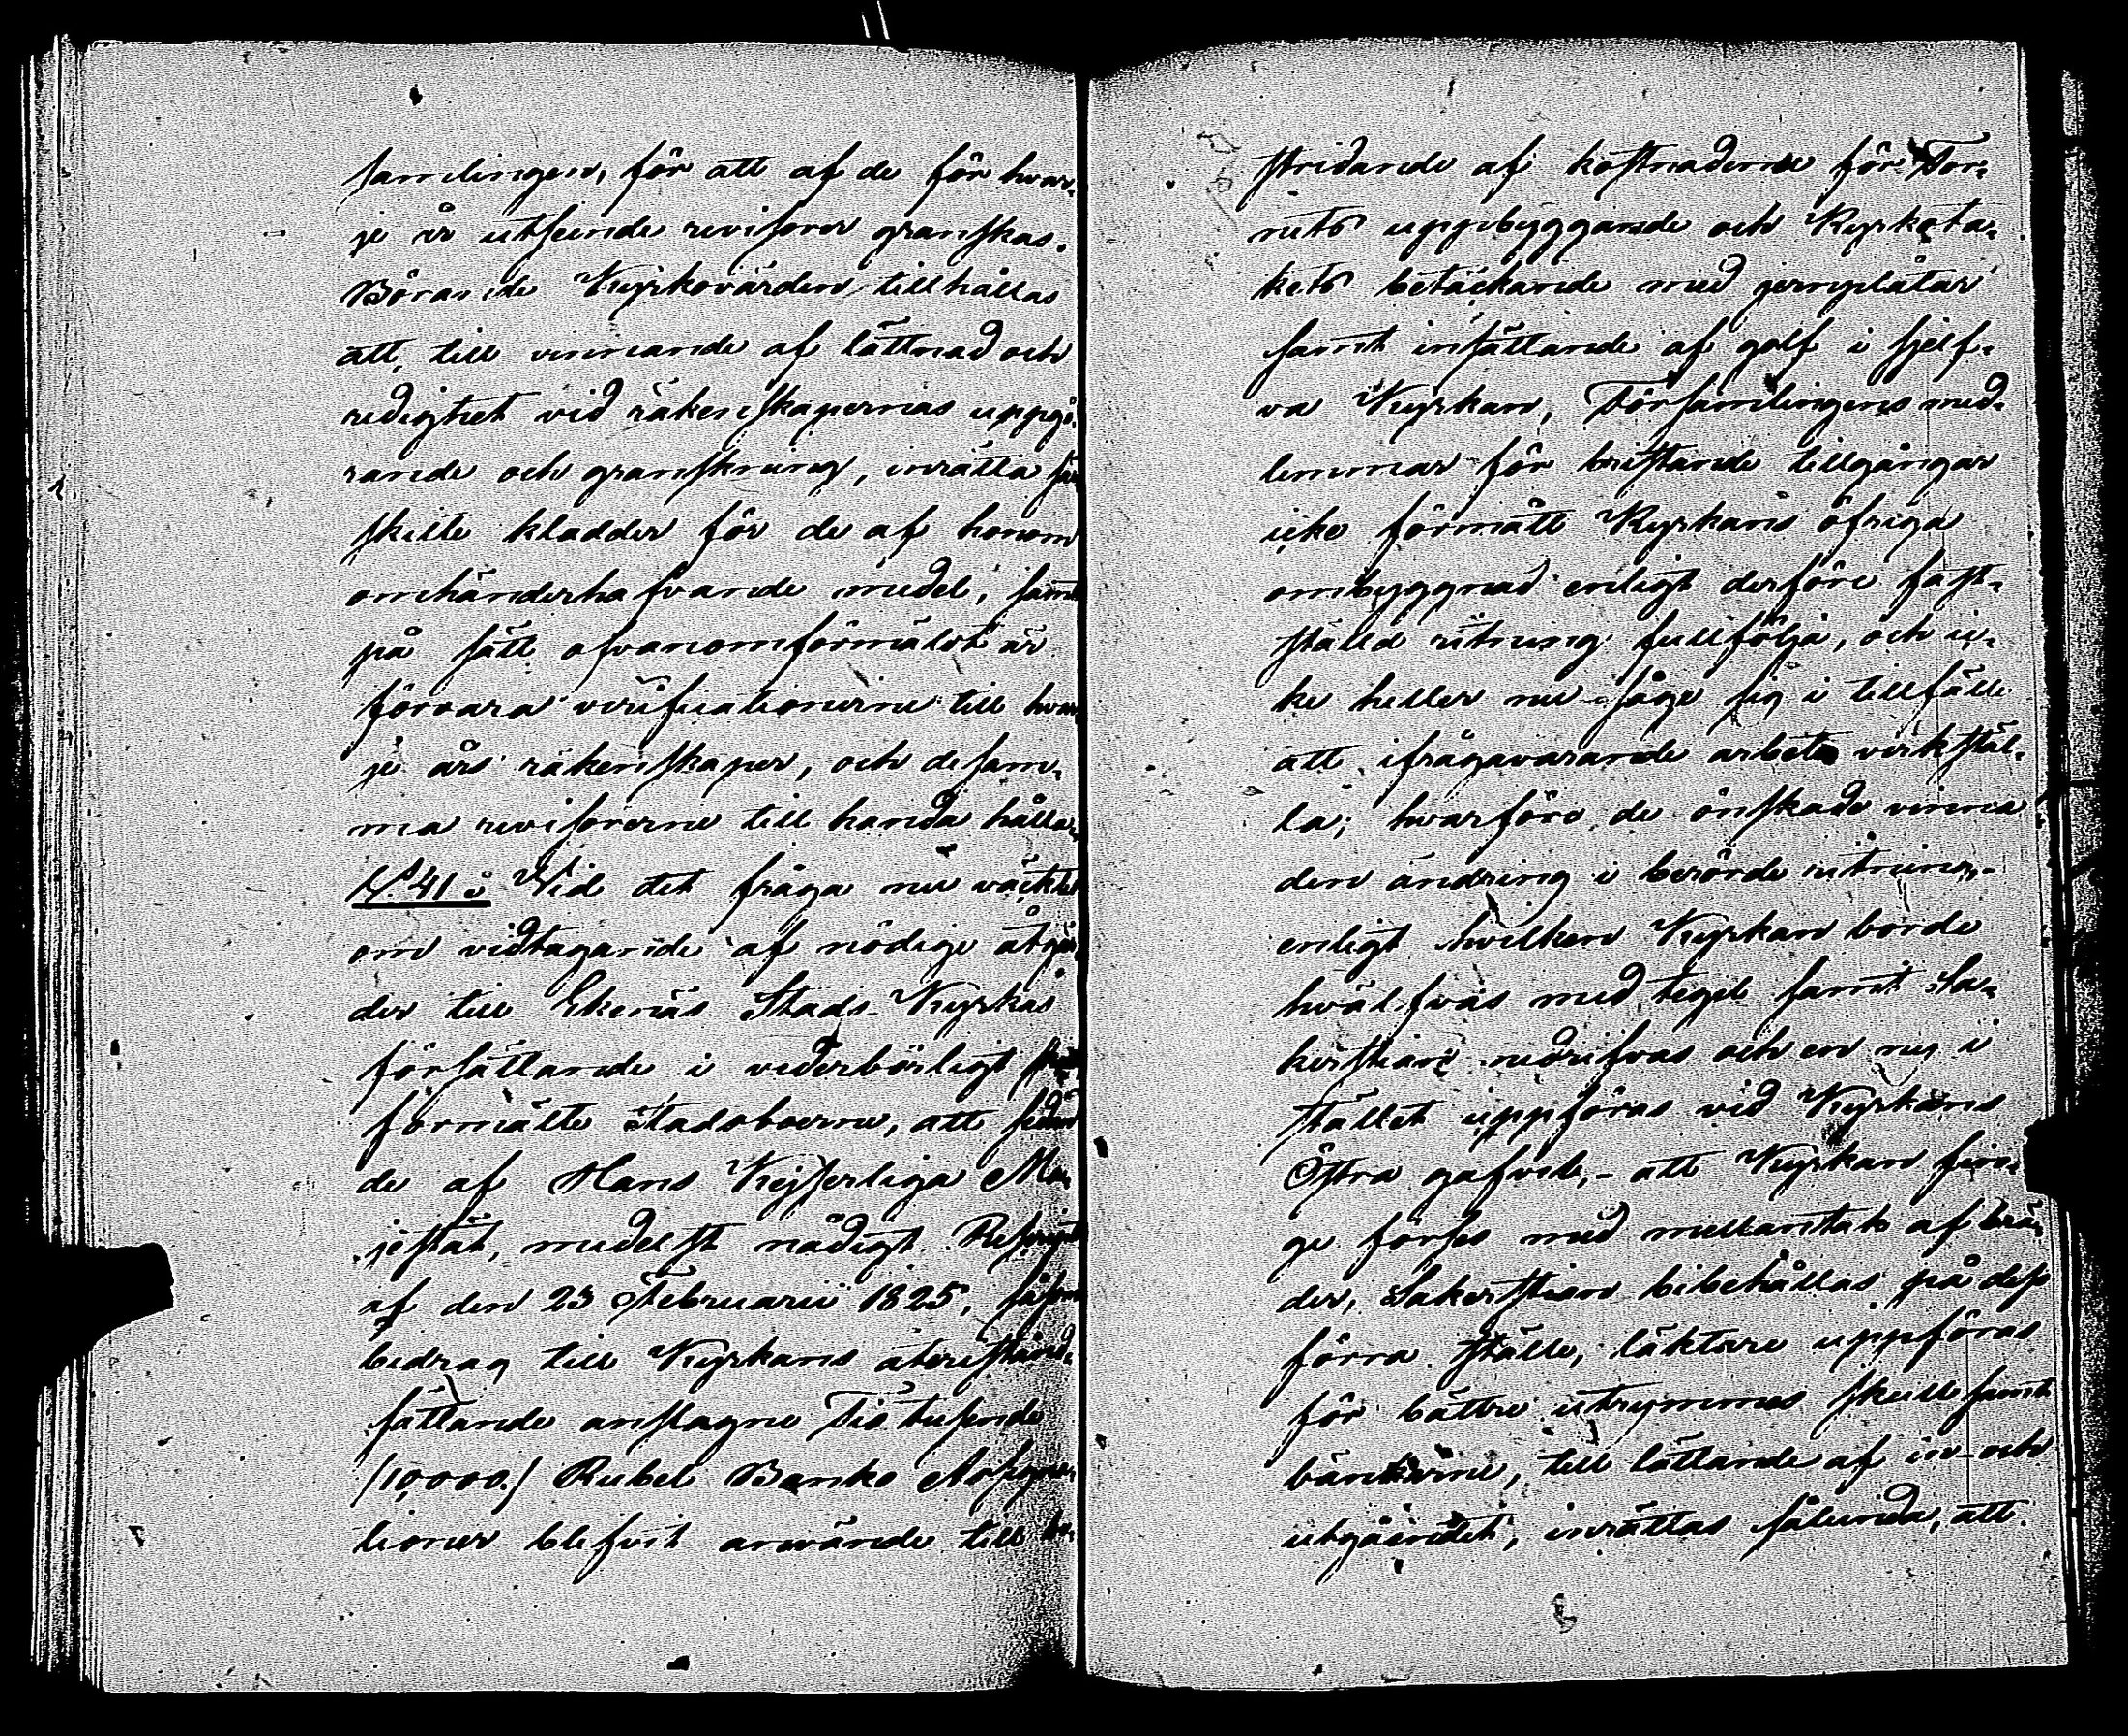 samlingen, för att af de för hvar-
je år utseende revisorer granskas.
Börande Kyrkovärden tillhållas
att, till vinnande af lättnad och
redighet vid räkenskapernas uppgö-
rande och granskning, inrätta sär
skilte kladder för de af honom
omhänderhafvande medel, samt
på sätt ofvanomförmäldt är
förvara verificationerne till hvar
je års räkenskaper, och desam-
ma revisorerne till handa hålla.
§. 41. Vid det fråga nu väcktes
om vidtagande af nödige åtgär
der till Ekenäs Stads Kyrkas
försättande i vederbörligt
förmälte Stadsboerne, att sedan
de af Hans Kejserliga Ma-
jestät, medelst nådigt Rescript
af den 23 Februarii 1825, såsom
bidrag till Kyrkans återiständ-
sättande anslagne Tio tusende
(10,000.) Rubel Banko Assigna-
tioner blifvit använde till be-
stridande af kostnaderne för Tor-
nets uppbyggande och Kyrkota-
kets betäckande med jernplåtar
samt insättande af golf i sjelf-
va Kyrkan, Församlingens med-
lemmar för bristande tillgångar
icke förmått Kyrkans öfriga
ombyggnad enligt derföre fast-
ställd ritning fullfölja, och ic-
ke heller nu såge sig i tillfälle
att ifrågavarande arbete verkstäl-
la; hvarföre de önskade vinna
den ändring i berörde ritning,
enligt hvilken Kyrkan borde
hvälfvas med tegel samt Sa-
kerstian nedrifvas och en ny i
stället uppföras vid Kyrkans
Östra gafvel, - att Kyrkan fin-
ge förses med mellantak af brä-
der, Sakerstian bibehållas på dess
förra ställe, läktare uppföras
för bättre utrymmes skull samt
bänkarne, till lättande af in- och
utgåendet, inrättas sålunda, att